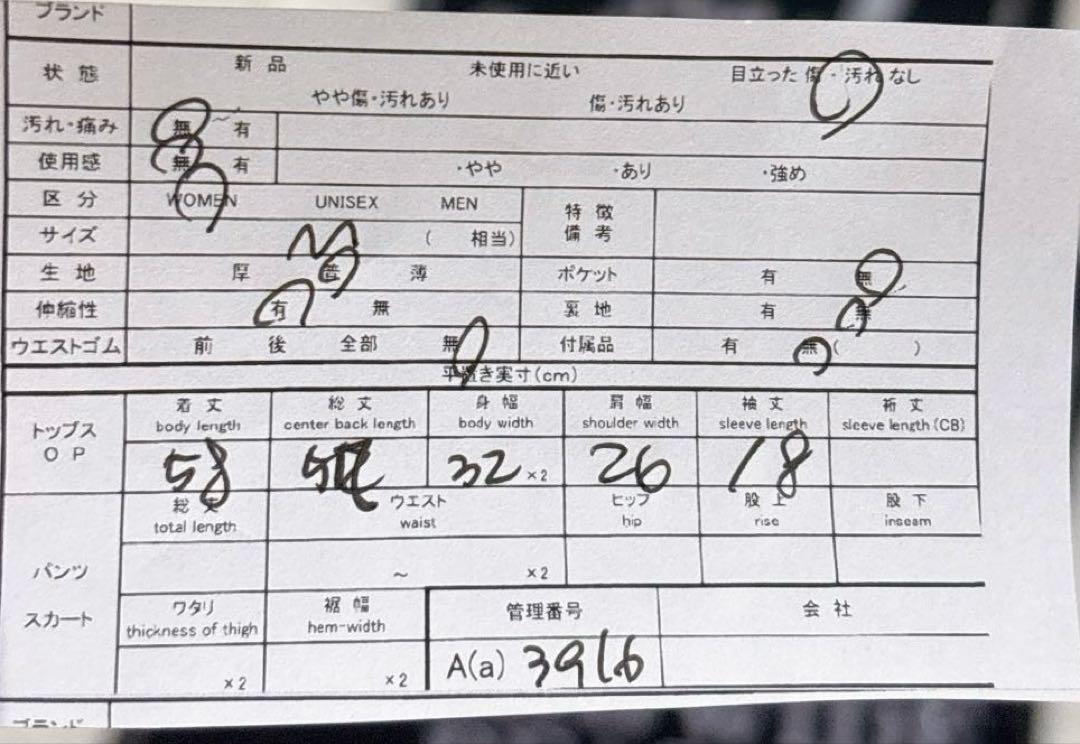 ブランド
状態 新品 未使用に近い 目立った傷・汚れなし
やや傷・汚れあり 傷・汚れあり
汚れ・痛み 無 有
使用感 無 有 ・やや ・あり ・強め
区分 WOMEN UNISEX MEN 特徴
サイズ M ( 相当) 備考
生地 厚 普 薄 ポケット 有 無
伸縮性 有 無 裏地 有 無
ウエストゴム 前 後 全部 無 付属品 有 無 ( )
平置き実寸(cm)
着丈 総丈 身幅 肩幅 袖丈 裄丈
トップス body length center back length body width shoulder width sleeve length sleeve length (CB)
OP 58 32 ×2 26 18
総丈 ウエスト ヒップ 股上 股下
total length waist hip rise inseam
パンツ ～ ×2
スカート ワタリ 裾幅 管理番号 会社
thickness of thigh hem-width
×2 ×2 A(a) 3916
ブランド